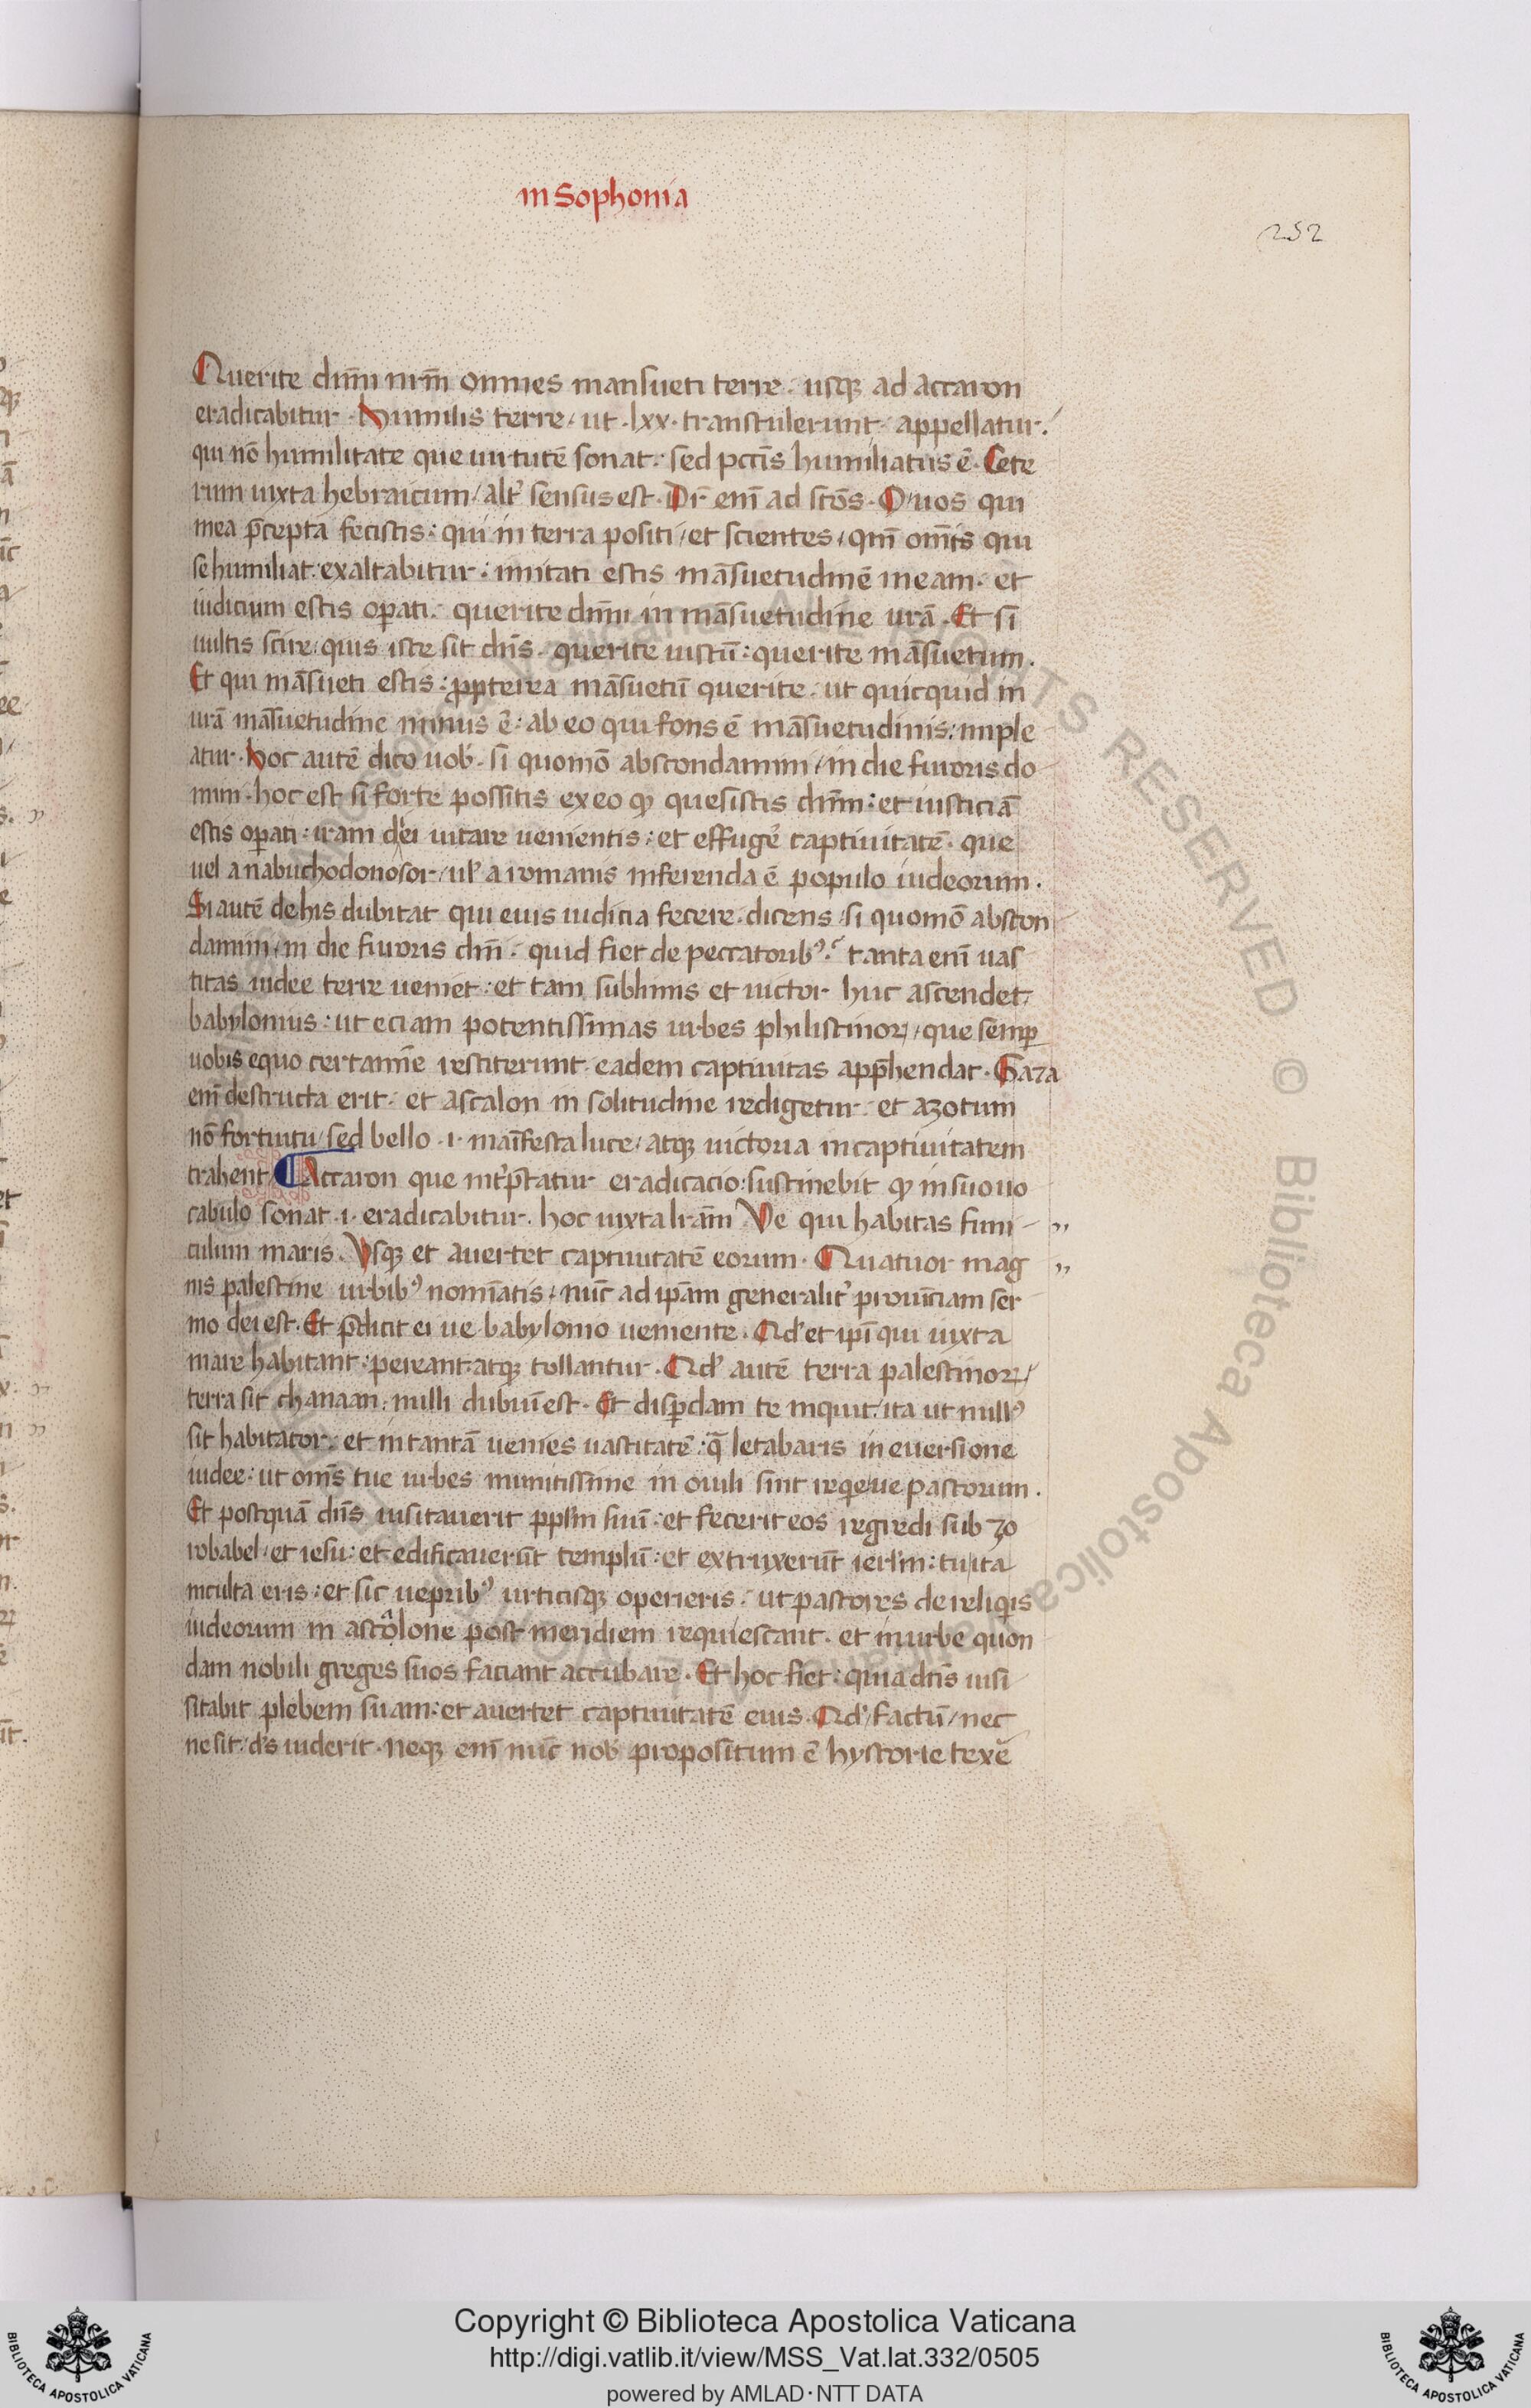 in Sophonia
252
Querite dn̄m nr̄m omnes mansueti terre. usqꝫ ad accaron
eradicabitur. Humilis terre, ut .lxx. transtulerunt, appellatur.
qui nō humilitate que uirtutē sonat: sed pctīs humiliatus ē. Cete
rum iuxta hebraicum, alr̄ sensus est. Dr̄ eni̅ ad sctōs. O uos qui
mea p̄cepta fecistis: qui in terra positi, et scientes, qm̄ omīs qui
se humiliat: exaltabitur: imitati estis māsuetudinē meam. et
iudicium estis oꝑati: querite dn̄m in māsuetudine urā. Et si
uultis scire, quis iste sit dn̄s. querite iustū: querite māsuetum.
Et qui māsueti estis: ꝓpterea māsuetū querite. ut quicquid in
urā māsuetudine minus ē: ab eo qui fons ē māsuetudinis: imple
atur. hoc autē dico uob. si quomō abscondamini, in die furoris do
mini. hoc est si forte possitis ex eo qꝫ quesistis dn̄m: et iusticiā
estis oꝑati: iram dei uitare uenientis: et effugē captiuitatē. que
uel a nabuchodonosor, ul' a romanis inferenda ē populo iudeorum.
Si autē de his dubitat qui eius iudicia fecere. dicens, si quomō abscon
damini, in die furoris dn̄i. quid fiet de peccatoribꝰ? tanta eni̅ uas
titas iudee terre ueniet: et tam sublimis et uictor huc ascendet,
babylonius: ut eciam potentissimas urbes philistinoꝝ, que semꝑ
uobis equo certamīe restiterunt, eadem captiuitas app̄hendat. Gaza
eni̅ destructa erit. et ascalon in solitudine redigetur. et azotum
nō fortuitu, sed bello .i. maīfesta luce, atqꝫ uictoria in captiuitatem
trahent. Accaron que int̄p̄tatur eradicacio: sustinebit qꝫ in suo uo
cabulo sonat .i. eradicabitur. hoc iuxta lr̄am Ve qui habitas funi „
culum maris. Vsqꝫ et auertet captiuitatē eorum. Quatuor mag „
nis palestine urbibꝰ nomīatis, nūc ad ip̄am generalit̄ prouīciam ser
mo dei est. Et p̄dicit ei ue babylonio ueniente. Qd' et ip̄i qui iuxta
mare habitant: pereant, atqꝫ tollantur. Qd' autē terra palestinoꝝ,
terra sit chanaan: nulli dubiū est. Et disꝑdam te inquit, ita ut nullꝰ
sit habitator: et in tantā uenies uastitatē: q̄ letabaris in euersione
iudee: ut om̄s tue urbes munitissime in ouili sint requieue pastorum.
Et postquā dn̄s uisitauerit ppl'm suū: et fecerit eos regredi sub zo
robabel, et iesu: et edificauerūt templū: et extruxerūt ierl'm: tu ita
inculta eris: et sic ueprib' urticisqꝫ operieris. ut pastores de reliquis
iudeorum in ascalone post meridiem requiescant. et in urbe quon
dam nobili greges suos faciant accubare. Et hoc fiet: quia dn̄s uisi
sitabit plebem suam: et auertet captiuitatē eius. Qd' factū, nec
ne sit: d's uiderit. neqꝫ eni̅ nūc nob propositum ē hystorie texē
Copyright © Biblioteca Apostolica Vaticana
http://digi.vatlib.it/view/MSS_Vat.lat.332/0505
powered by AMLAD·NTT DATA
BIBLIOTECA APOSTOLICA VATICANA
BIBLIOTECA APOSTOLICA VATICANA